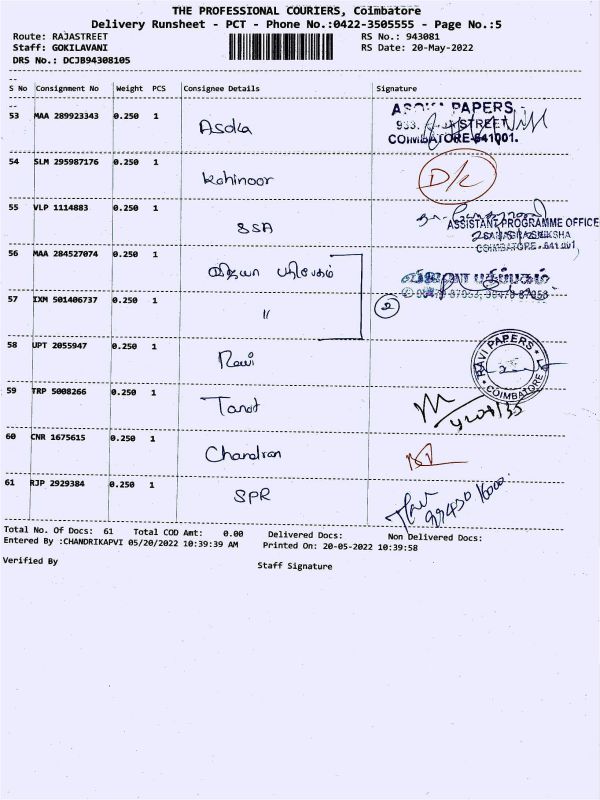 THE PROFESSIONAL COURIERS, Coimbatore
Delivery Runsheet - PCT - Phone No.:0422-3505555 - Page No.:5
Route: RAJASTREET RS No.: 943081
Staff: GOKILAVANI RS Date: 20-May-2022
DRS No.: DCJB94308105
S No Consignment No Weight PCS Consignee Details Signature
53 MAA 289923343 0.250 1 Asoka
PAPERS,
STREET,
COIMBATORE-641001.
54 SLM 295987176 0.250 1 Kohinoor D/c
55 VLP 1114883 0.250 1 SSA
ASSISTANT PROGRAMME OFFICE
COIMBATORE - 641 001,
56 MAA 284527074 0.250 1
57 IXM 501406737 0.250 1 11 2
58 UPT 2055947 0.250 1 Ravi
RAVI PAPERS
COIMBATORE
59 TRP 5008266 0.250 1
60 CNR 1675615 0.250 1 Chandran
61 RJP 2929384 0.250 1 SPR
Total No. Of Docs: 61 Total COD Amt: 0.00 Delivered Docs: Non Delivered Docs:
Entered By :CHANDRIKAPVI 05/20/2022 10:39:39 AM Printed On: 20-05-2022 10:39:58
Verified By Staff Signature